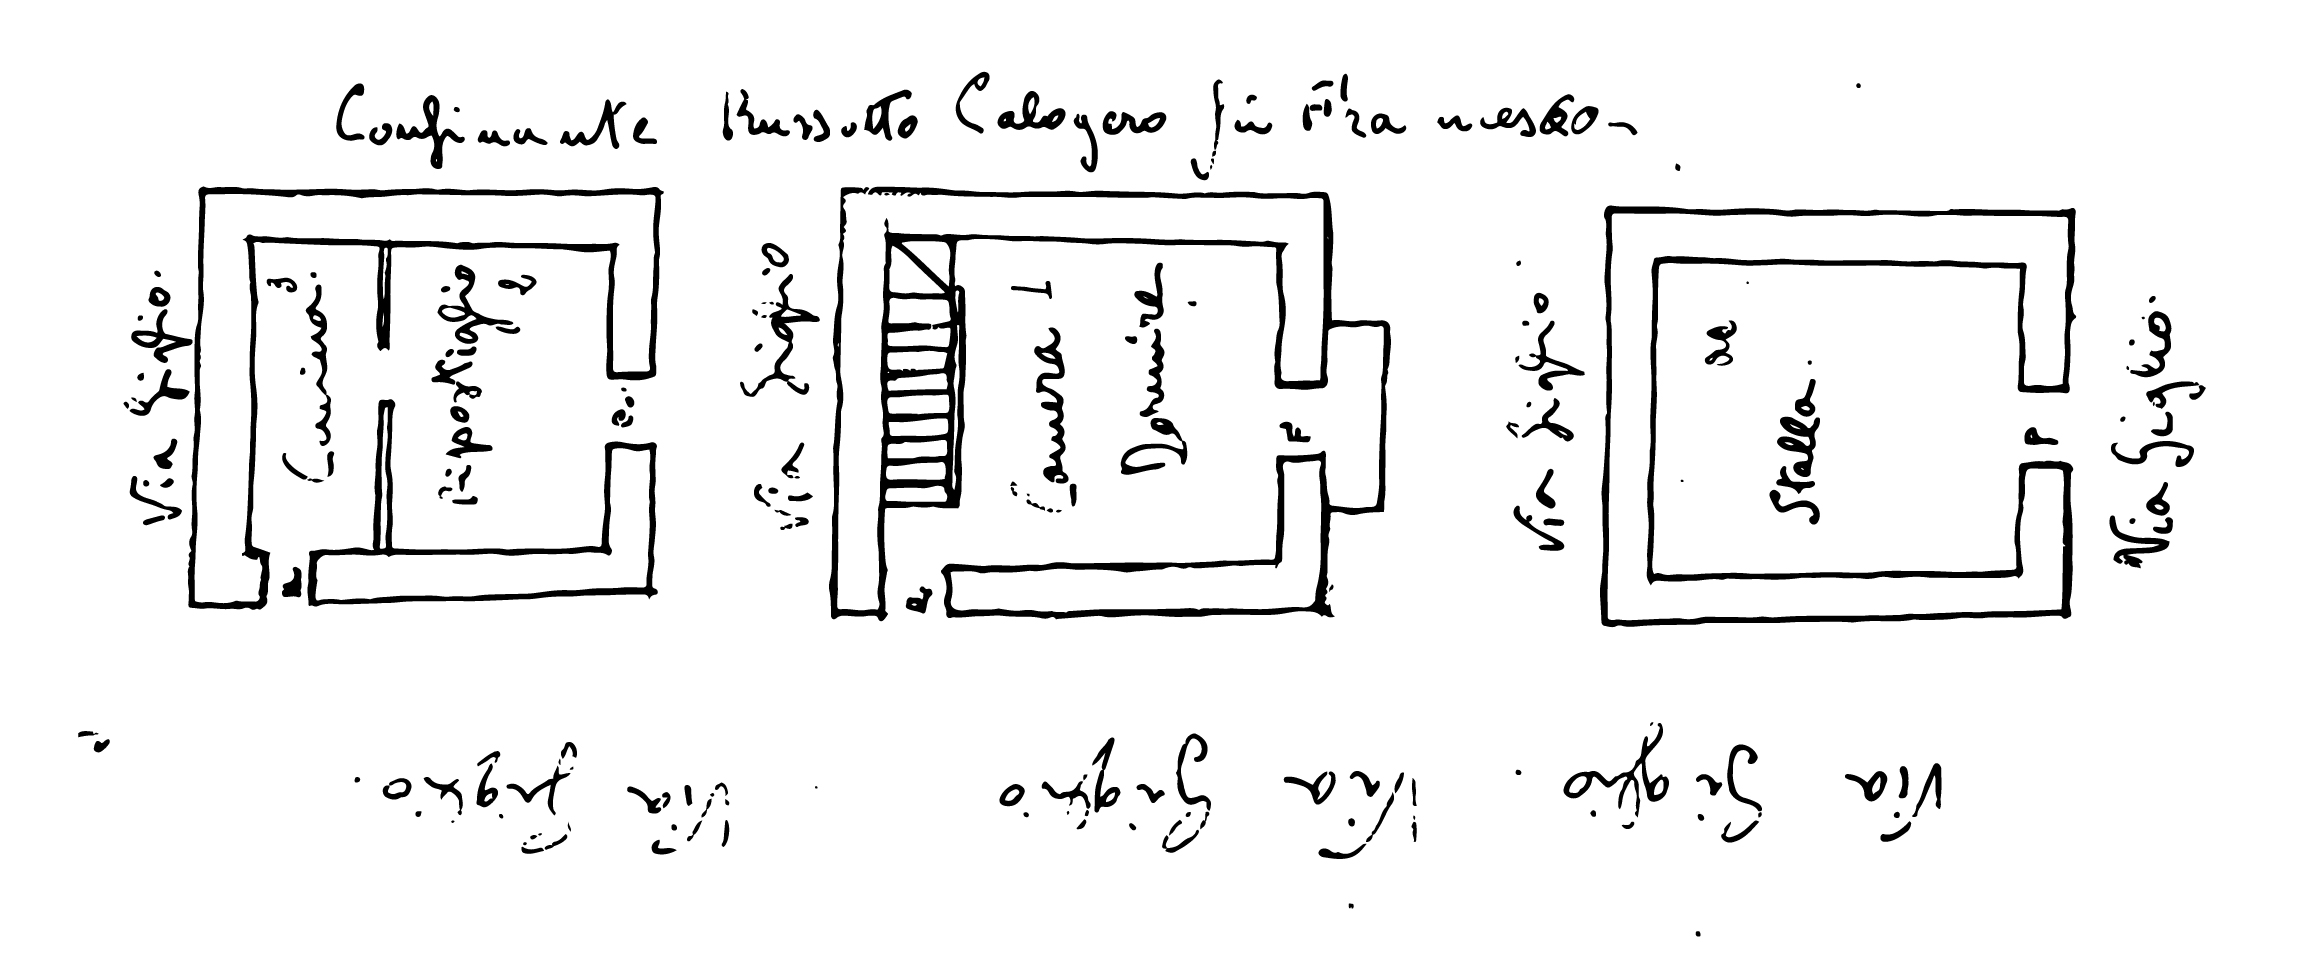 Confinante Russotto Calogero fu Francesco
Via Giglio
Cucina 3
Ripostiglio 2
P.
Via Giglio
Camera 1
Dormire
F
P.
Via Giglio
Stalla
P
Via Giglio
Via Giglio
Via Giglio
Via Giglio